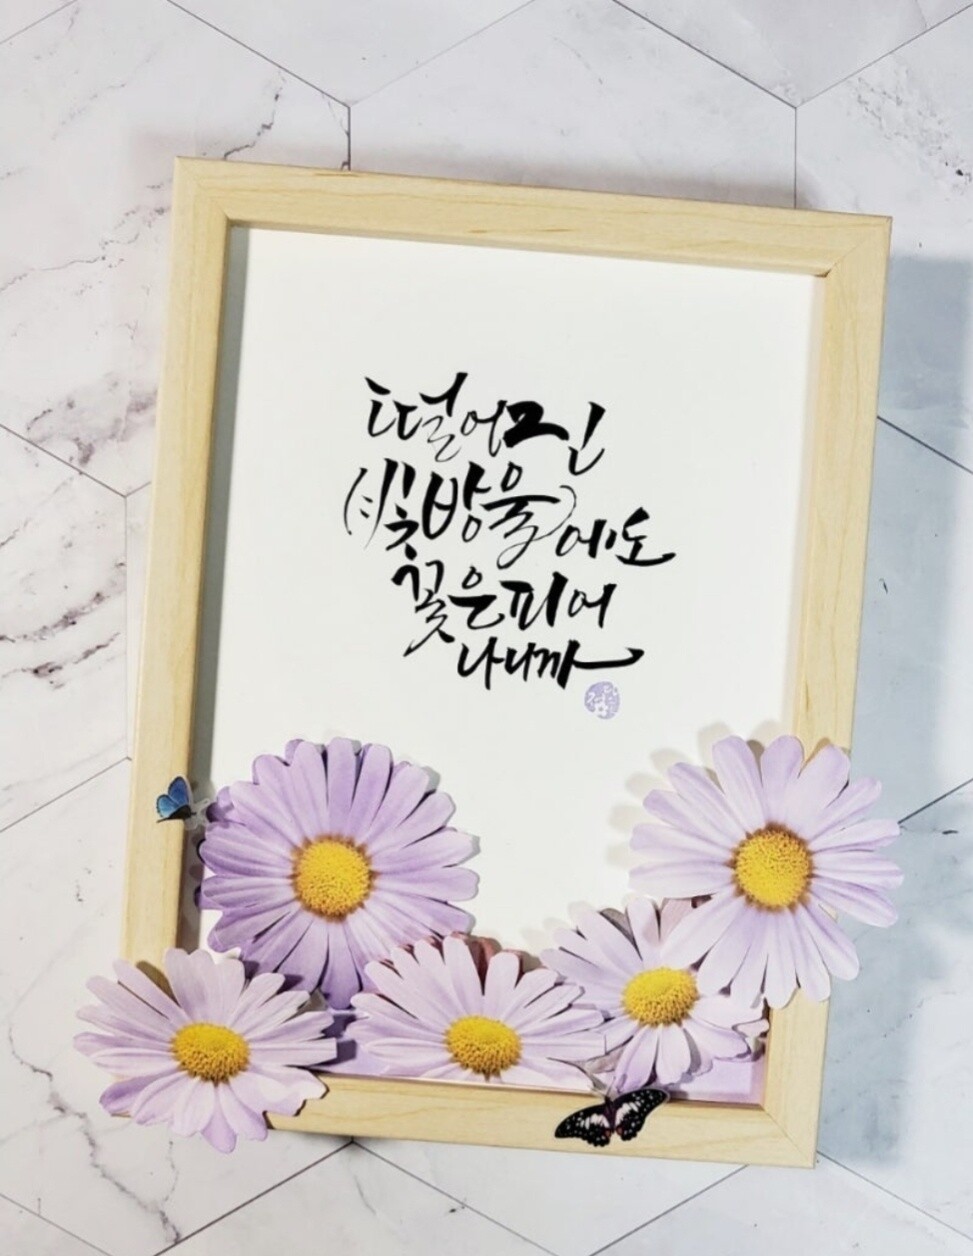 떨어진
(빛방울)에도
꽃은 피어
나니까